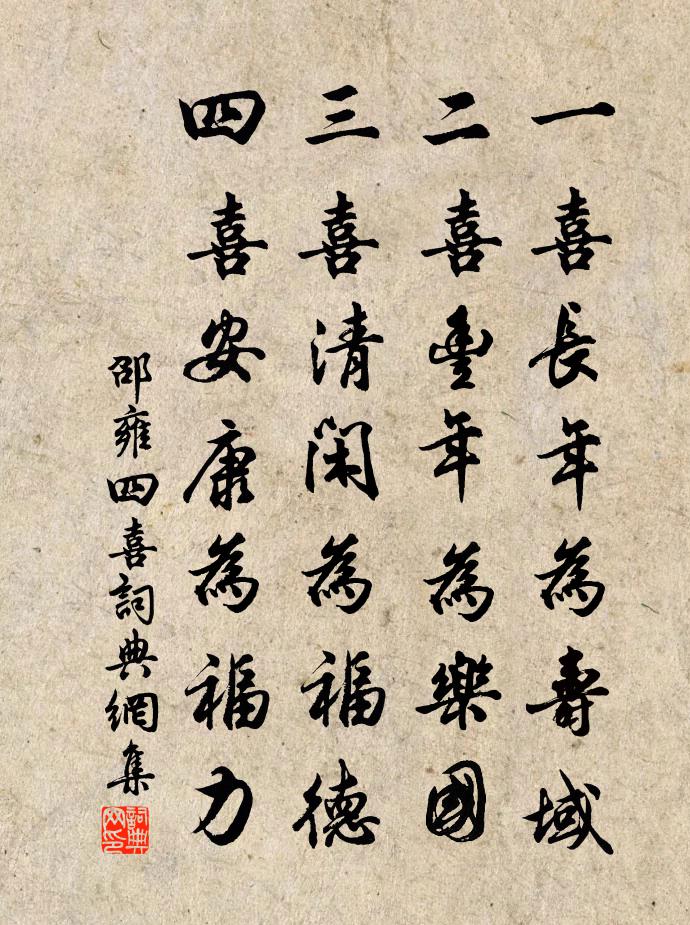 一喜長年為壽域
二喜豊年為樂國
三喜清閑為福德
四喜安康為福力
邵雍四喜詞典網集
詞典網印